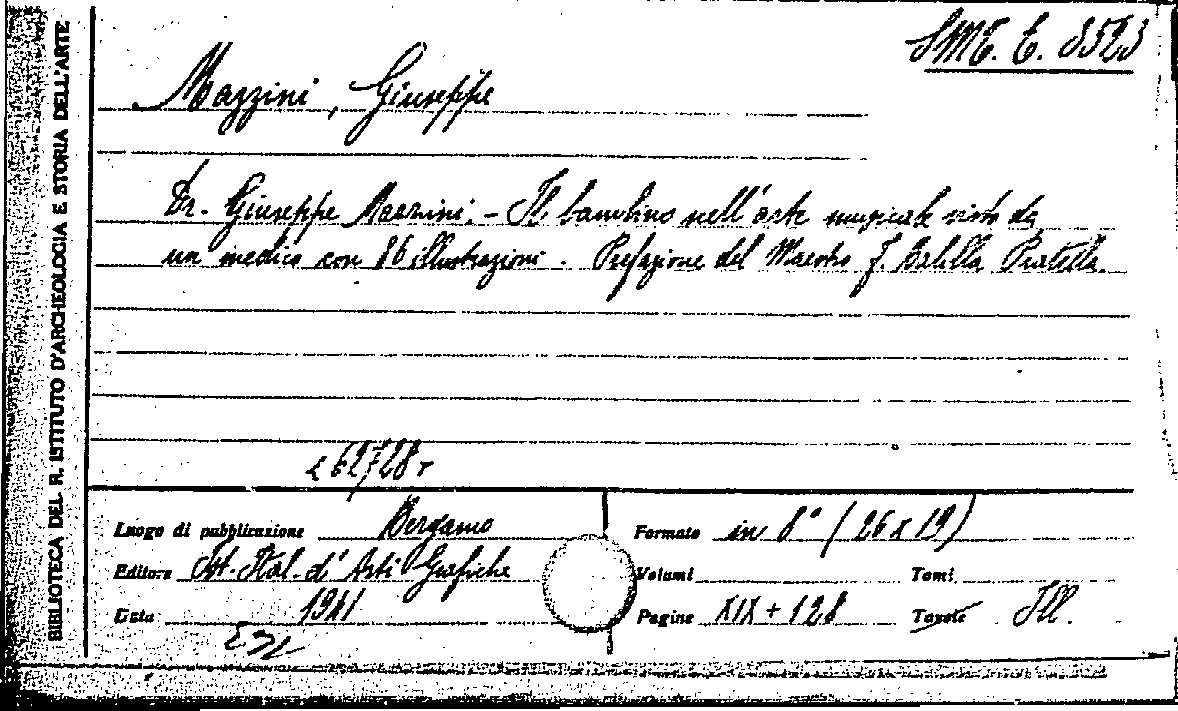 BIBLIOTECA DEL R. ISTITUTO D'ARCHEOLOGIA E STORIA DELL'ARTE
SME. E. 3523
Mazzini, Giuseppe
Dr. Giuseppe Mazzini. - Il bambino nell'arte musicale visto da
un medico con 86 illustrazioni. Prefazione del Maestro F. Balilla Pratella.
262728
Luogo di pubblicazione Bergamo
Formato in 8° (26x19)
Editore Ist. Ital. d'Arti Grafiche
Volumi Tomi
Data 1941
Pagine XIX + 128 Tavole Ill.